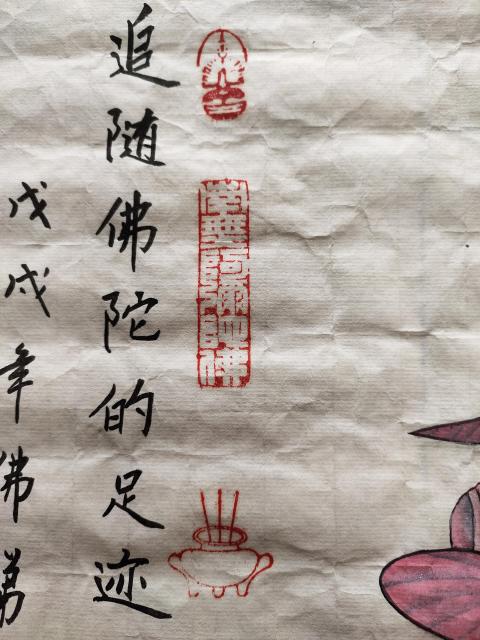 南無阿彌陀佛
追随佛陀的足迹
戊戌年佛